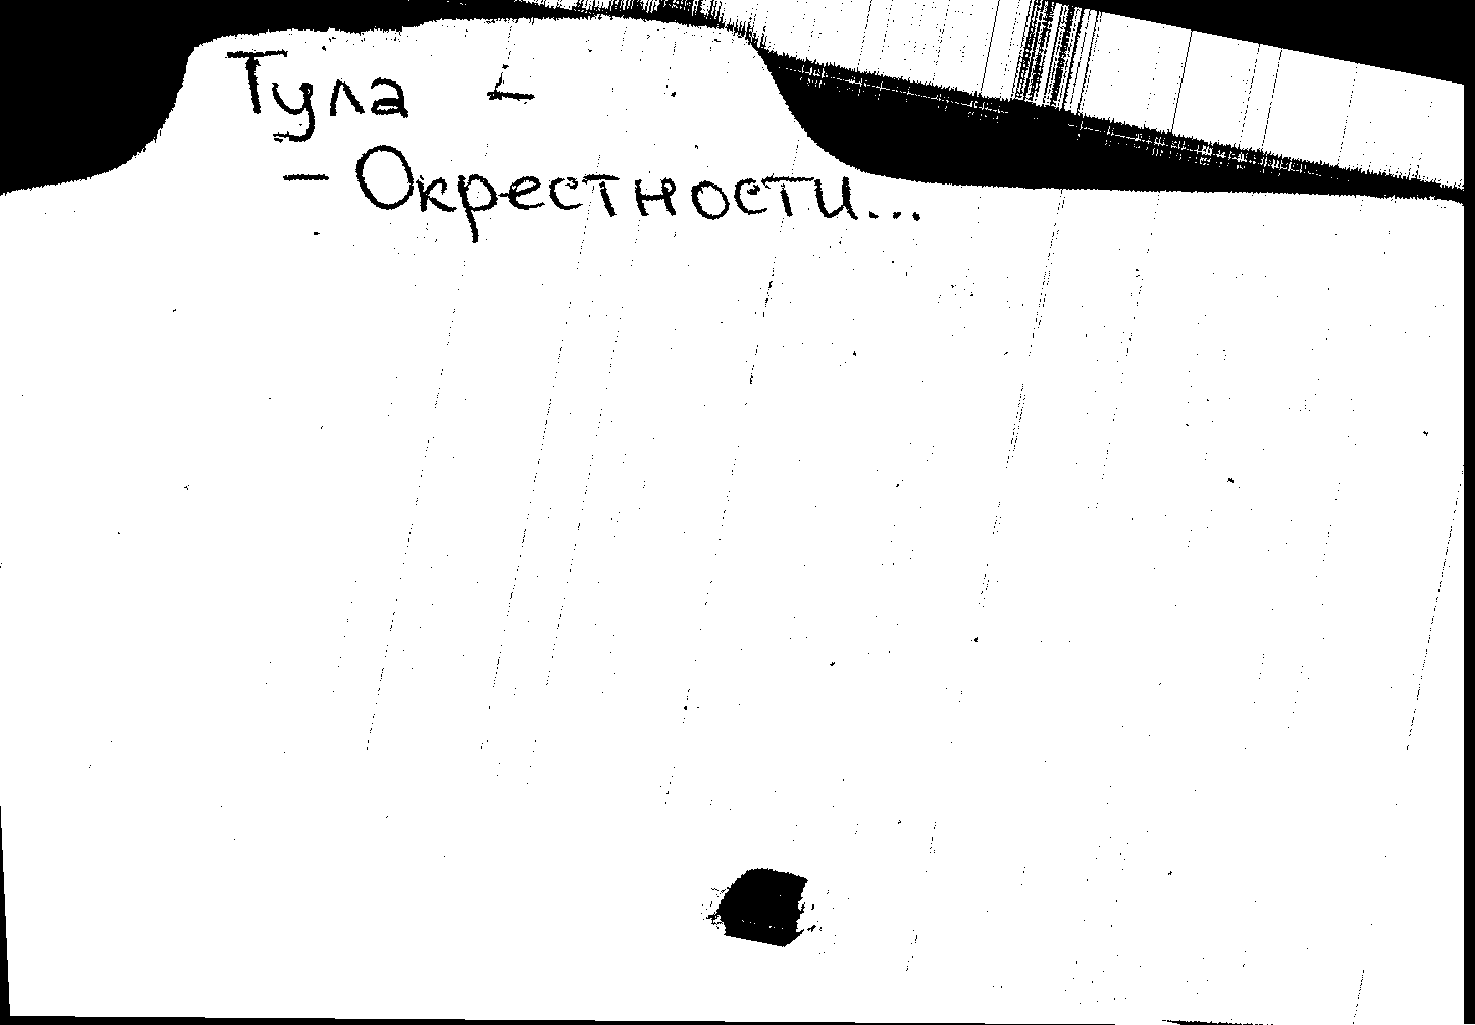 Тула -
- Окрестности...